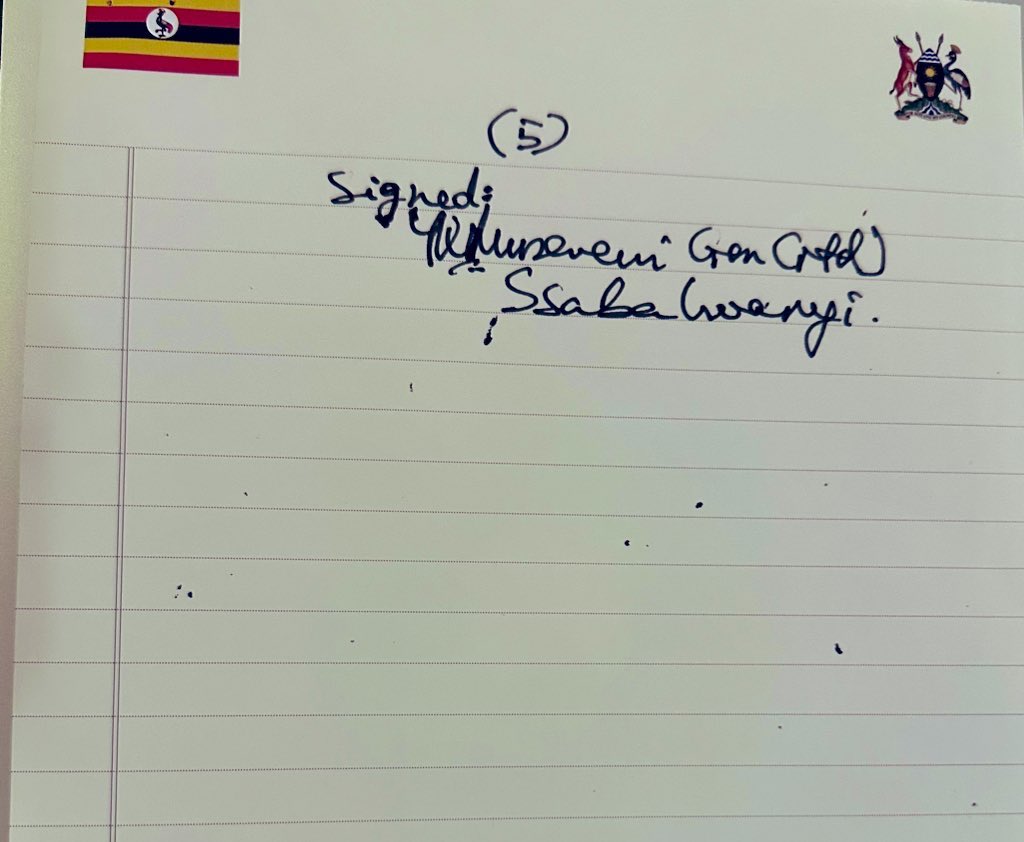 (5)
Signed:
YKMuseveni Gen (rtd)
Ssabalwanyi.